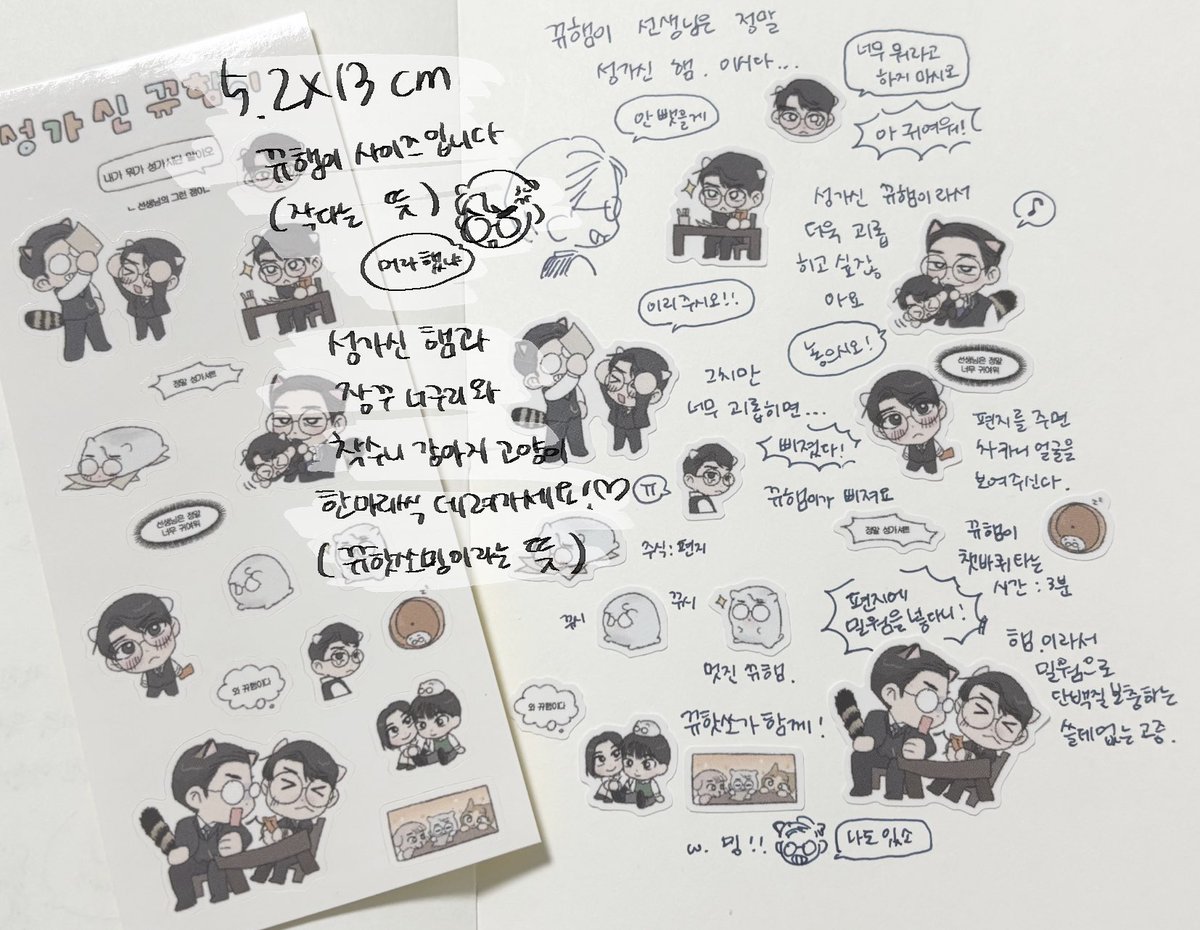 성가신 뀨햄이
5.2x13 cm
뀨햄이 사이즈입니다
(작다는 뜻)
머라했냐
성가신 햄과
짱꾸 너구리와
착수니 강아지 고양이
한마리씩 데려가세요!♡
(뀨핫쏘밍이라는 뜻)
내가 뭐가 성가시단 말이오
ㄴ 선생님의 그런 점이..
정말 성가셔튼
선생님은 정말
너무 귀여워
와 뀨햄이다
뀨햄이 선생님은 정말
성가신 햄.이버다...
너무 뭐라고
하지 마시오
아 귀여워!
안 뺏을게
성가신 뀨햄이라서
더욱 괴롭
히고 싶잖
아요
♪
이리 주시오!!
놓으시오!
선생님은 정말
너무 귀여워
그치만
너무 괴롭히면...
삐졌다!
뀨햄이가 삐져요
ㅠ
편지를 주면
차카니 얼굴을
보여주신다.
정말 성가셔튼
뀨햄이
쳇바퀴 타는
시간 : 3분
주식 : 편지
뀨시
뀨시
멋진 뀨햄.
편지에
밀웜을 넣다니!
햄.이라서
밀웜으로
단백질 보충하는
쓸데없는 고증.
와 뀨햄이다
뀨핫쏘가 함께!
w. 밍!!
나도 있소